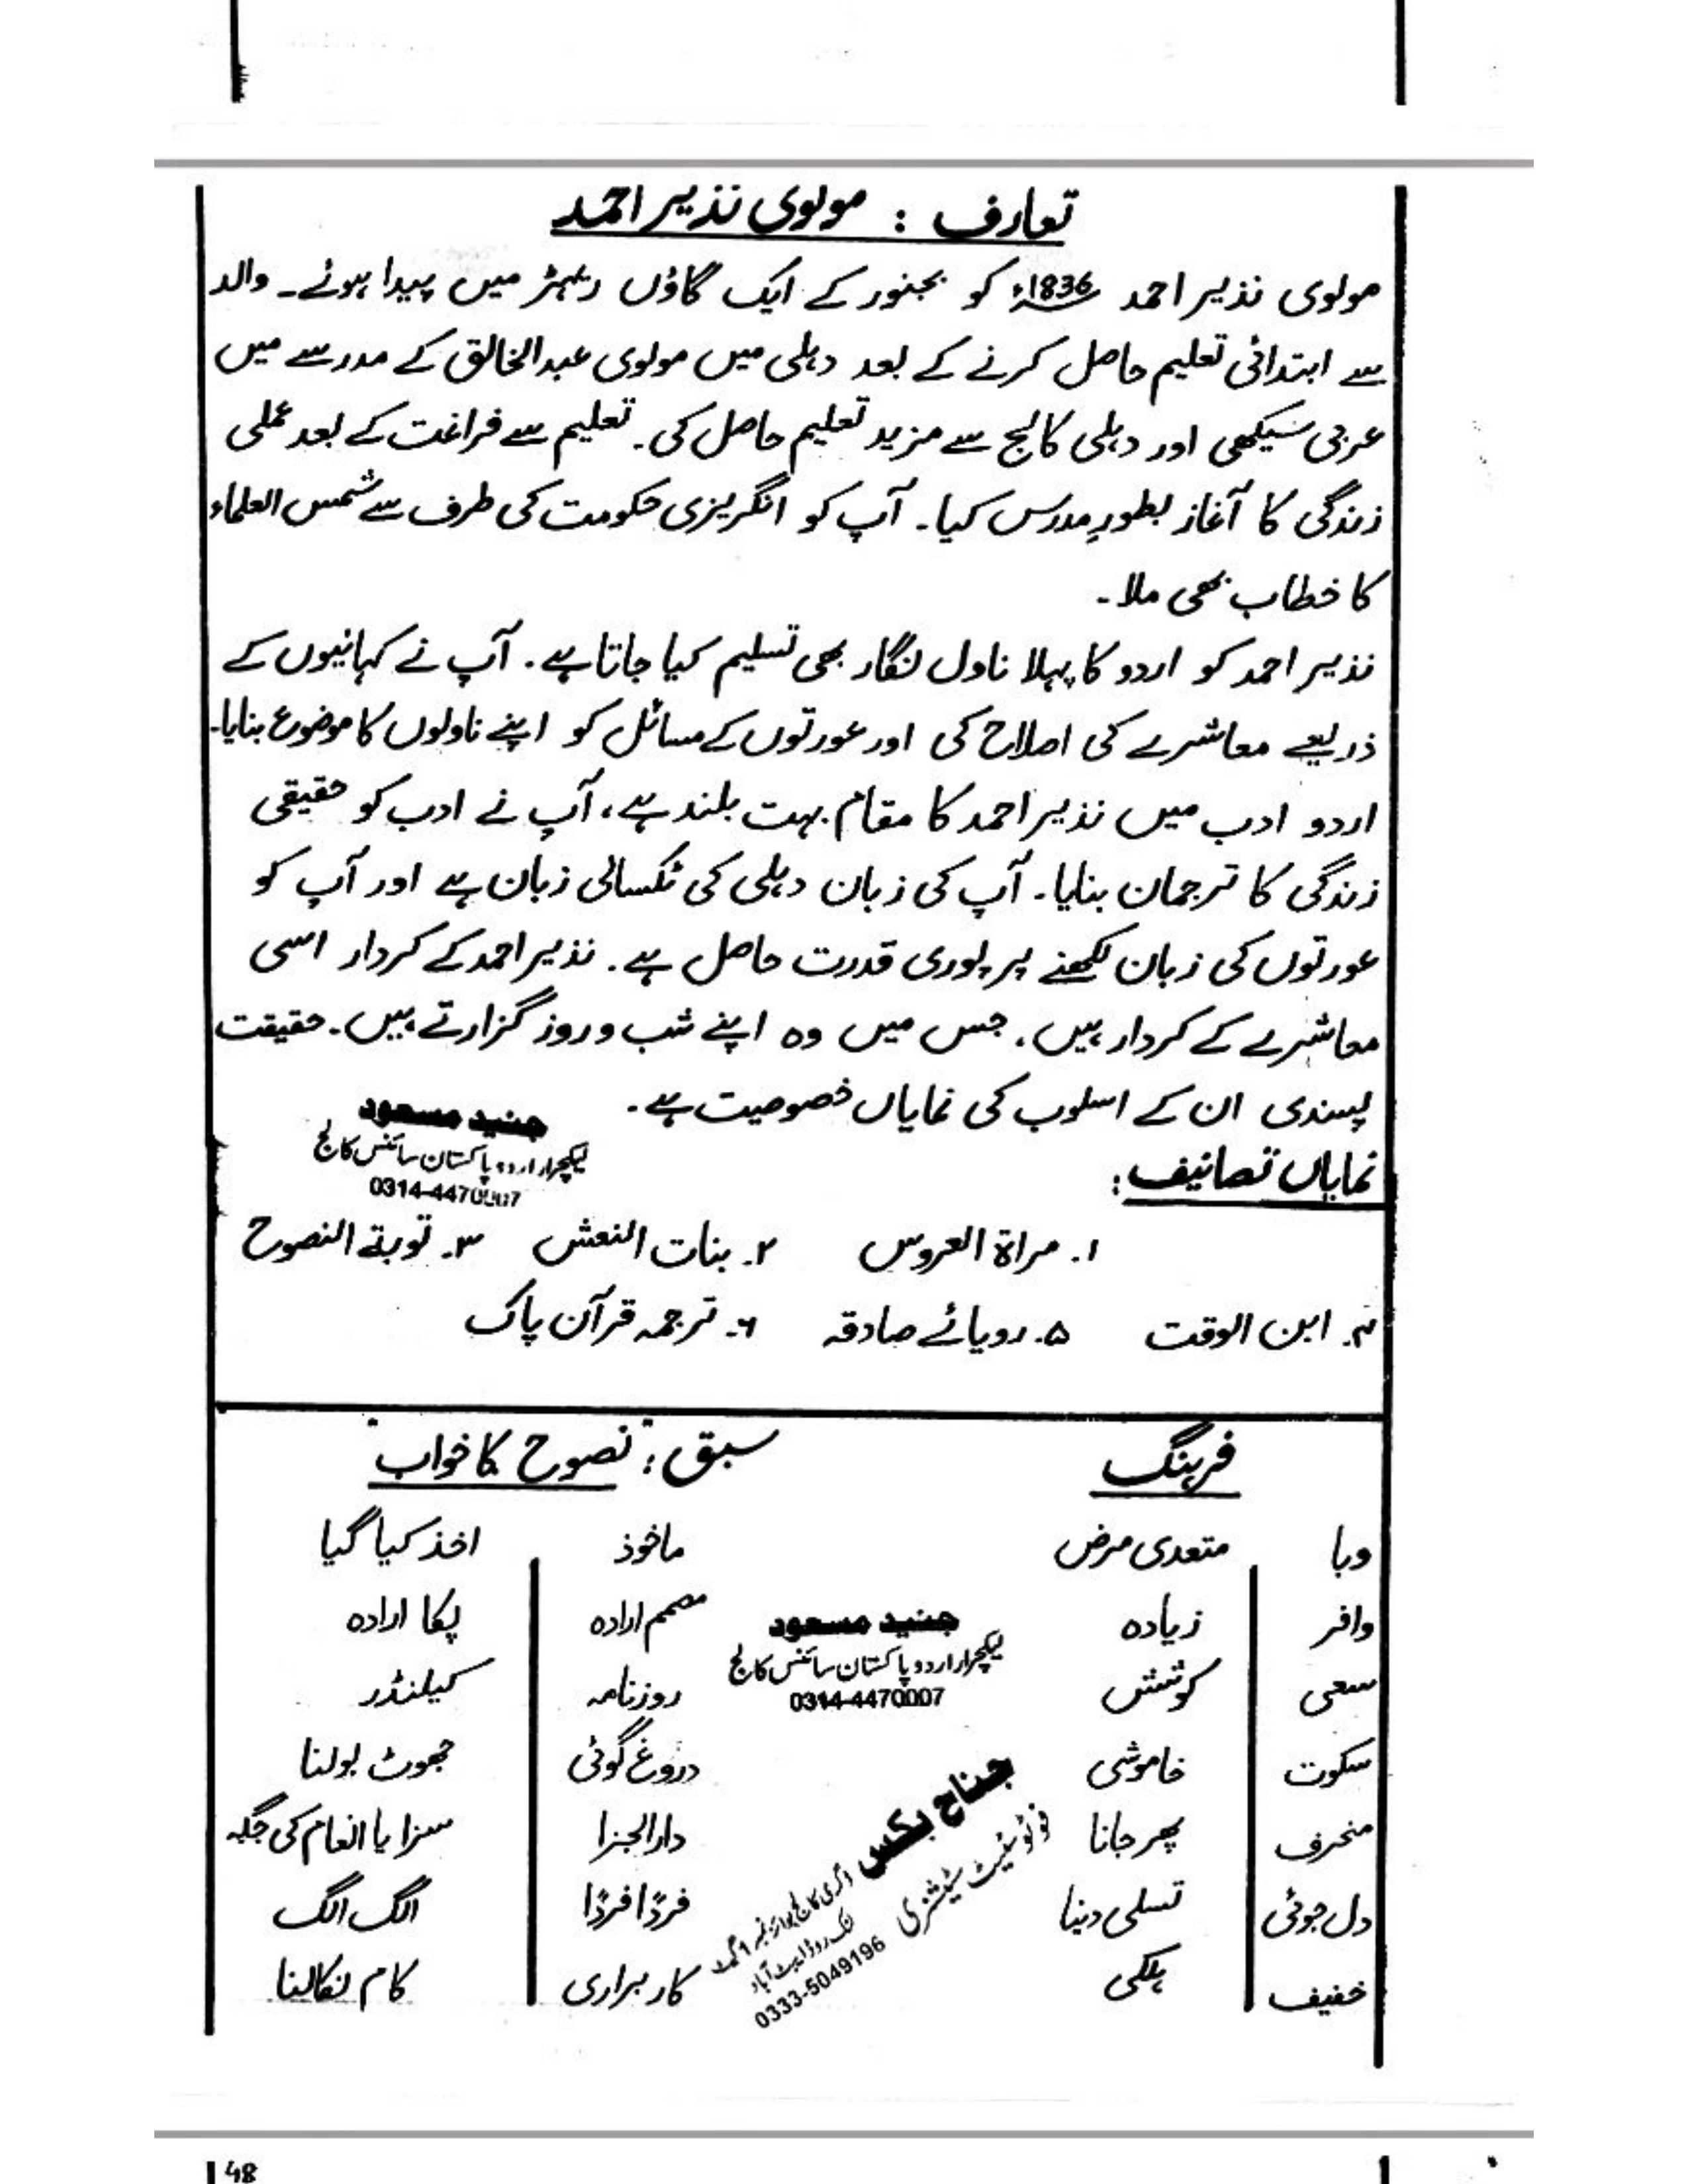 تعارف : مولوی نذیر احمد
مولوی نذیر احمد 1836ء کو بجنور کے ایک گاؤں ریہڑ میں پیدا ہوئے۔ والد
سے ابتدائی تعلیم حاصل کرنے کے بعد دہلی میں مولوی عبدالخالق کے مدرسے میں
عربی سیکھی اور دہلی کالج سے مزید تعلیم حاصل کی۔ تعلیم سے فراغت کے بعد عملی
زندگی کا آغاز بطورِ مدرس کیا۔ آپ کو انگریزی حکومت کی طرف سے شمس العلماء
کا خطاب بھی ملا۔
نذیر احمد کو اردو کا پہلا ناول نگار بھی تسلیم کیا جاتا ہے۔ آپ نے کہانیوں کے
ذریعے معاشرے کی اصلاح کی اور عورتوں کے مسائل کو اپنے ناولوں کا موضوع بنایا۔
اردو ادب میں نذیر احمد کا مقام بہت بلند ہے، آپ نے ادب کو حقیقی
زندگی کا ترجمان بنایا۔ آپ کی زبان دہلی کی ٹکسالی زبان ہے اور آپ کو
عورتوں کی زبان لکھنے پر پوری قدرت حاصل ہے۔ نذیر احمد کے کردار اسی
معاشرے کے کردار ہیں، جس میں وہ اپنے شب و روز گزارتے ہیں۔ حقیقت
پسندی ان کے اسلوب کی نمایاں خصوصیت ہے۔
جنید مسعود
لیکچرار اردو پاکستان سائنس کالج
0314-4470007
نمایاں تصانیف :
۱۔ مراۃ العروس ۲۔ بنات النعش ۳۔ توبۃ النصوح
۴۔ ابن الوقت ۵۔ رویائے صادقہ ۶۔ ترجمہ قرآن پاک
فرہنگ سبق : "نصوح کا خواب"
وبا متعدی مرض ماخوذ اخذ کیا گیا
وافر زیادہ مصمم ارادہ پکا ارادہ
جنید مسعود
لیکچرار اردو پاکستان سائنس کالج
0314-4470007
سعی کوشش روزنامہ کیلنڈر
سکوت خاموشی دروغ گوئی جھوٹ بولنا
منحرف پھر جانا دارالجزا سزا یا انعام کی جگہ
دل جوئی تسلی دینا فرداً فرداً الگ الگ
خفیف ہلکی کار براری کام نکالنا
جناح بکس
فوٹو سٹیٹ سٹیشنری
لنک روڈ ایبٹ آباد
0333-5049196
48